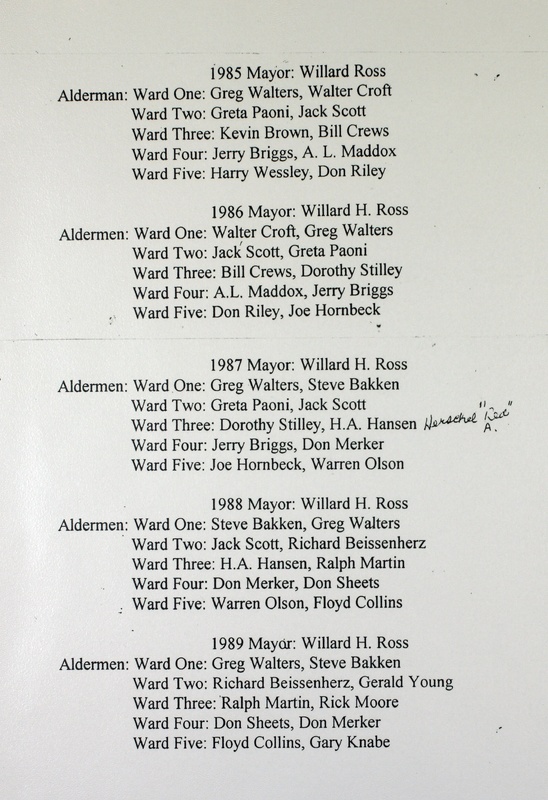 1985 Mayor: Willard Ross
Alderman: Ward One: Greg Walters, Walter Croft
Ward Two: Greta Paoni, Jack Scott
Ward Three: Kevin Brown, Bill Crews
Ward Four: Jerry Briggs, A. L. Maddox
Ward Five: Harry Wessley, Don Riley
1986 Mayor: Willard H. Ross
Aldermen: Ward One: Walter Croft, Greg Walters
Ward Two: Jack Scott, Greta Paoni
Ward Three: Bill Crews, Dorothy Stilley
Ward Four: A.L. Maddox, Jerry Briggs
Ward Five: Don Riley, Joe Hornbeck
1987 Mayor: Willard H. Ross
Aldermen: Ward One: Greg Walters, Steve Bakken
Ward Two: Greta Paoni, Jack Scott
Ward Three: Dorothy Stilley, H.A. Hansen Herschel "Red" A.
Ward Four: Jerry Briggs, Don Merker
Ward Five: Joe Hornbeck, Warren Olson
1988 Mayor: Willard H. Ross
Aldermen: Ward One: Steve Bakken, Greg Walters
Ward Two: Jack Scott, Richard Beissenherz
Ward Three: H.A. Hansen, Ralph Martin
Ward Four: Don Merker, Don Sheets
Ward Five: Warren Olson, Floyd Collins
1989 Mayor: Willard H. Ross
Aldermen: Ward One: Greg Walters, Steve Bakken
Ward Two: Richard Beissenherz, Gerald Young
Ward Three: Ralph Martin, Rick Moore
Ward Four: Don Sheets, Don Merker
Ward Five: Floyd Collins, Gary Knabe